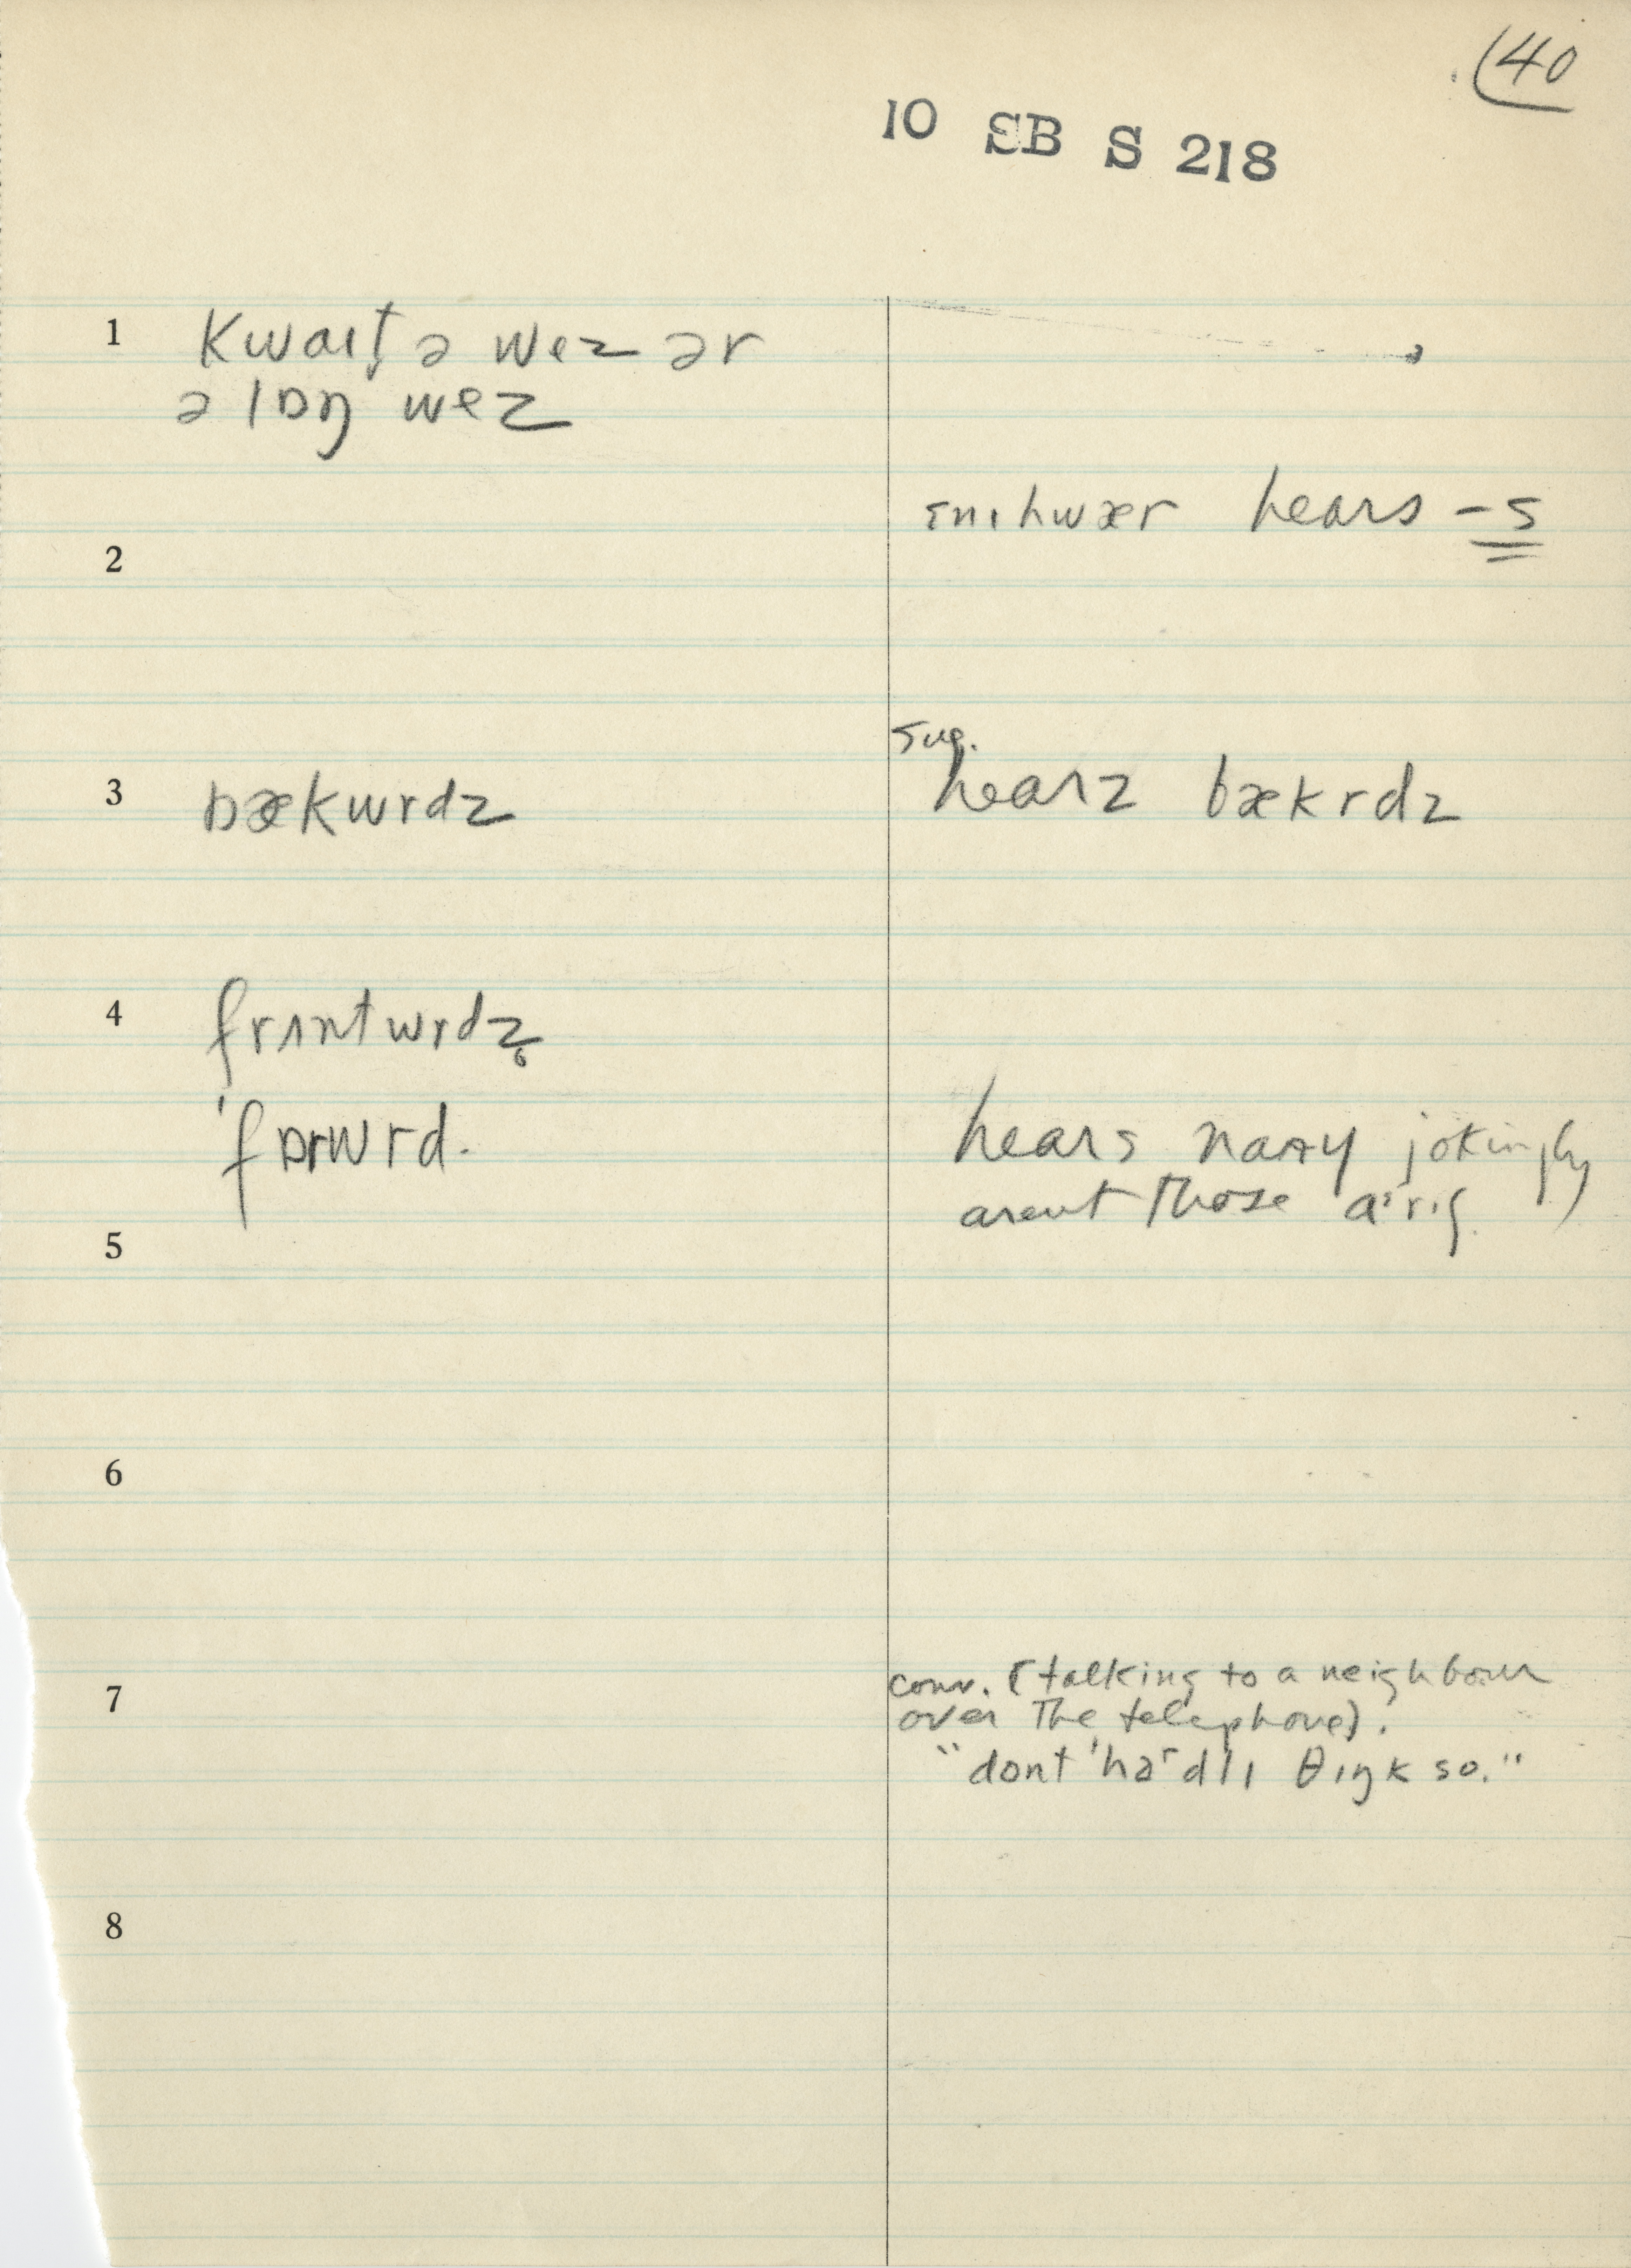 (40
10 SB S 218
1 kwaɪt̬ ə wez ər
ə lɒŋ wez
ɛnɪhwær hears -s
2
sug.
3 bækwrdz hearz bækrdz
4 frʌntwrdz̥
'fɒrwrd. hears nary jokingly
arent those aɪrɪʃ
5
6
7 conv. (talking to a neighbour
over the telephone).
"dont 'hardlɪ θɪŋk so."
8